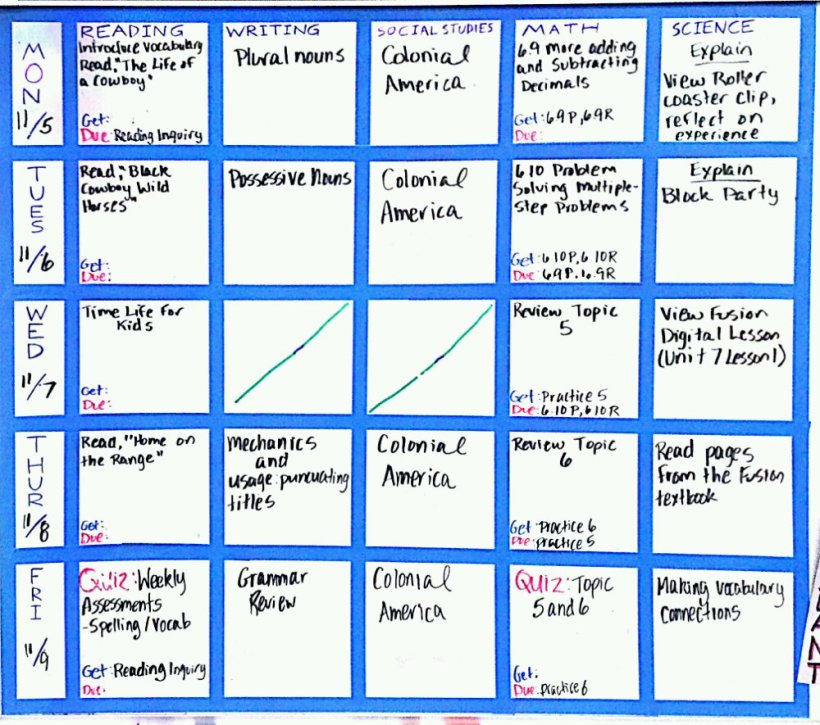 READING
WRITING
SOCIAL STUDIES
MATH
SCIENCE
MON
11/5
Introduce Vocabulary
Read,"The Life of
a Cowboy"
Get:
Due: Reading Inquiry
Plural nouns
Colonial
America
6.9 more adding
and Subtracting
Decimals
Get: 6.9P, 6.9R
Due:
Explain
View Roller
coaster clip,
reflect on
experience
TUES
11/6
Read, "Black
Cowboy Wild
Horses"
Get:
Due:
Possessive Nouns
Colonial
America
6.10 Problem
Solving Multiple-
Step Problems
Get: 6.10P, 6.10R
Due: 6.9P, 6.9R
Explain
Block Party
WED
11/7
Time Life For
Kids
Get:
Due:
Review Topic
5
Get: Practice 5
Due: 6.10P, 6.10R
View Fusion
Digital Lesson
(Unit 7 Lesson 1)
THUR
11/8
Read, "Home on
the Range"
Get:
Due:
mechanics
and
usage: puncuating
titles
Colonial
America
Review Topic
6
Get: Practice 6
Due: practice 5
Read pages
from the Fusion
textbook
FRI
11/9
Quiz: Weekly
Assessments
-Spelling/Vocab
Get: Reading Inquiry
Due:
Grammar
Review
Colonial
America
QUIZ: Topic
5 and 6
Get:
Due: practice 6
Making vocabulary
connections